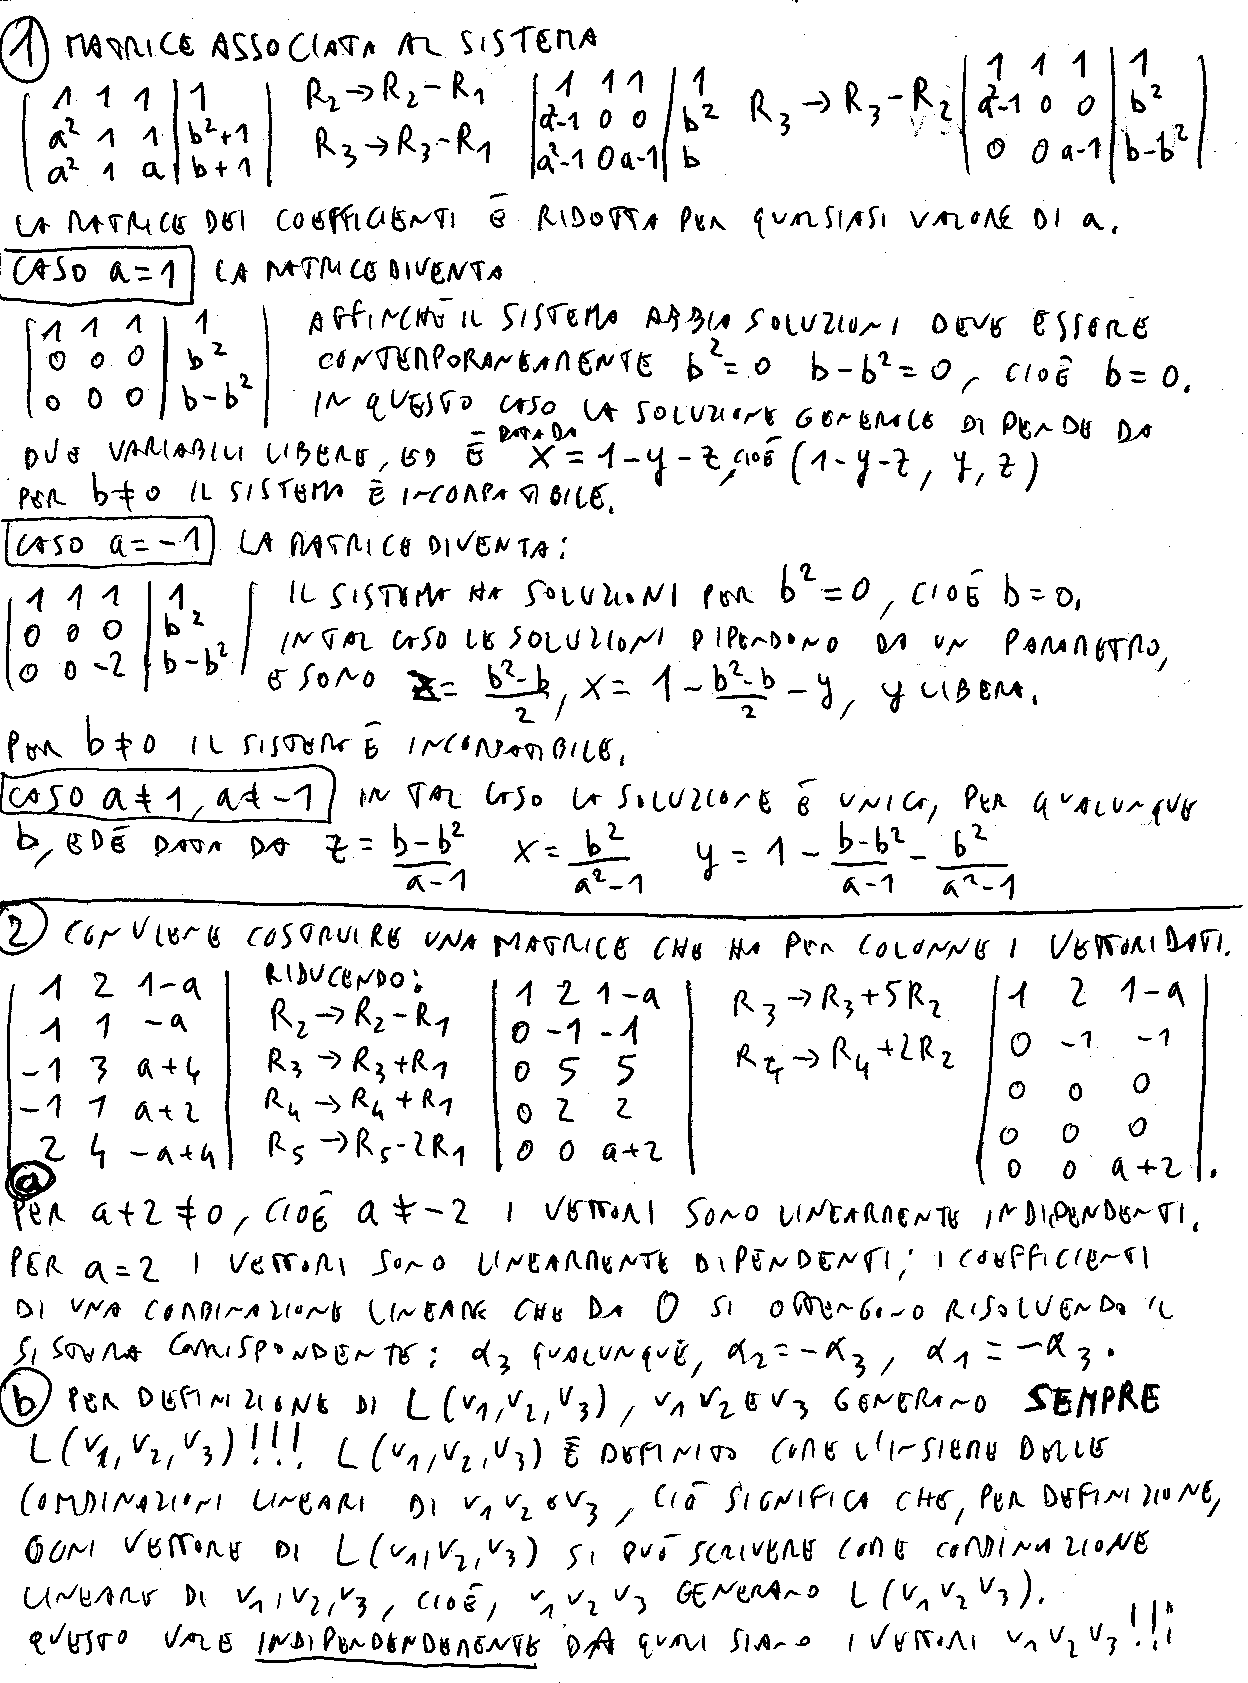 1 MATRICE ASSOCIATA AL SISTEMA
| 1 1 1 | 1 | R2→R2-R1 | 1 1 1 | 1 R3→R3-R2 | 1 1 1 | 1 |
| a² 1 1 | b²+1 | R3→R3-R1 | a²-1 0 0 | b² | a²-1 0 0 | b² |
| a² 1 a | b+1 | | a²-1 0 a-1 | b | 0 0 a-1 | b-b² |
LA MATRICE DEI COEFFICIENTI È RIDOTTA PER QUALSIASI VALORE DI a.
CASO a=1 LA MATRICE DIVENTA
| 1 1 1 | 1 | AFFINCHÈ IL SISTEMA ABBIA SOLUZIONI DEVE ESSERE
| 0 0 0 | b² | CONTEMPORANEAMENTE b²=0 b-b²=0, CIOÈ b=0.
| 0 0 0 | b-b² | IN QUESTO CASO LA SOLUZIONE GENERALE DIPENDE DA
DUE VARIABILI LIBERE, ED È DATA DA x=1-y-z, CIOÈ (1-y-z, y, z)
PER b≠0 IL SISTEMA È INCOMPATIBILE.
CASO a=-1 LA MATRICE DIVENTA:
| 1 1 1 | 1 | IL SISTEMA HA SOLUZIONI PER b²=0, CIOÈ b=0.
| 0 0 0 | b² | IN TAL CASO LE SOLUZIONI DIPENDONO DA UN PARAMETRO,
| 0 0 -2 | b-b² | E SONO z=(b²-b)/2, x=1-(b²-b)/2-y, y LIBERA.
PER b≠0 IL SISTEMA È INCOMPATIBILE.
CASO a≠1, a≠-1 IN TAL CASO LA SOLUZIONE È UNICA, PER QUALUNQUE
b, ED È DATA DA z=(b-b²)/(a-1) x=b²/(a²-1) y=1-(b-b²)/(a-1)-b²/(a²-1)
2 CONVIENE COSTRUIRE UNA MATRICE CHE HA PER COLONNE I VETTORI DATI.
| 1 2 1-a | RIDUCENDO: | 1 2 1-a | R3→R3+5R2 | 1 2 1-a |
| 1 1 -a | R2→R2-R1 | 0 -1 -1 | R4→R4+2R2 | 0 -1 -1 |
| -1 3 a+4 | R3→R3+R1 | 0 5 5 | | 0 0 0 |
| -1 1 a+2 | R4→R4+R1 | 0 2 2 | | 0 0 0 |
| 2 4 -a+4 | R5→R5-2R1 | 0 0 a+2 | | 0 0 a+2 |.
a
PER a+2≠0, CIOÈ a≠-2 I VETTORI SONO LINEARMENTE INDIPENDENTI.
PER a=2 I VETTORI SONO LINEARMENTE DIPENDENTI; I COEFFICIENTI
DI UNA COMBINAZIONE LINEARE CHE DA 0 SI OTTENGONO RISOLVENDO IL
SISTEMA CORRISPONDENTE: α3 QUALUNQUE, α2=-α3, α1=-α3.
b PER DEFINIZIONE DI L(v1,v2,v3), v1 v2 E v3 GENERANO SEMPRE
L(v1,v2,v3)!!! L(v1,v2,v3) È DEFINITO COME L'INSIEME DELLE
COMBINAZIONI LINEARI DI v1 v2 e v3, CIÒ SIGNIFICA CHE, PER DEFINIZIONE,
OGNI VETTORE DI L(v1,v2,v3) SI PUÒ SCRIVERE COME COMBINAZIONE
LINEARE DI v1,v2,v3, CIOÈ, v1 v2 v3 GENERANO L(v1 v2 v3).
QUESTO VALE INDIPENDENDEMENTE DA QUALI SIANO I VETTORI v1 v2 v3!!!